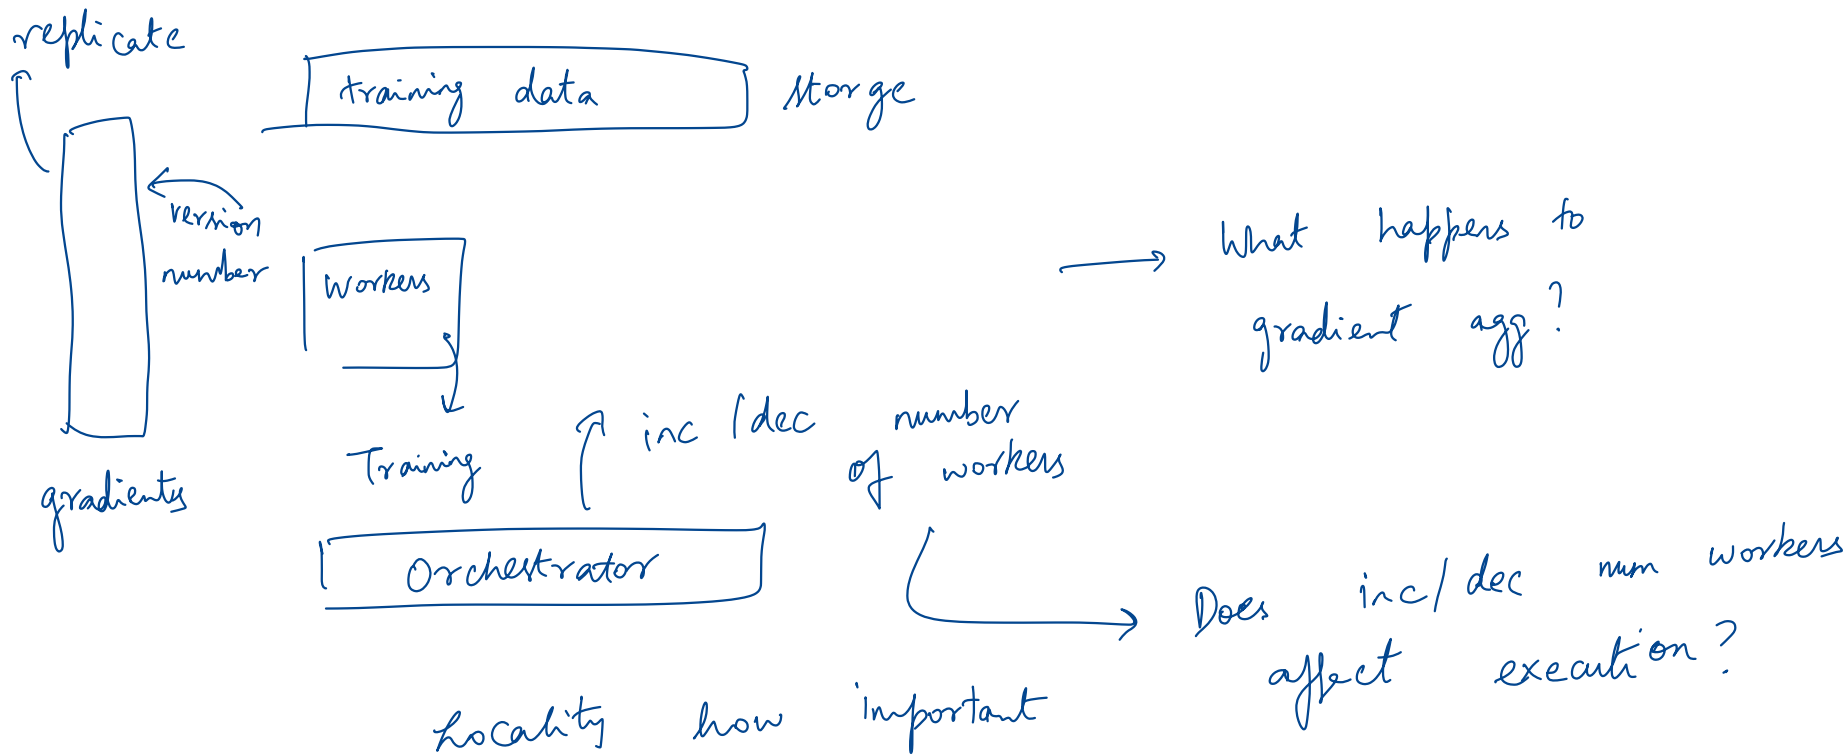 replicate
training data
Storge
version
number
Workers
What happens to
gradient agg?
inc/dec number
of workers
Training
gradients
Orchestrator
Does inc/dec num workers
affect execution?
Locality how important